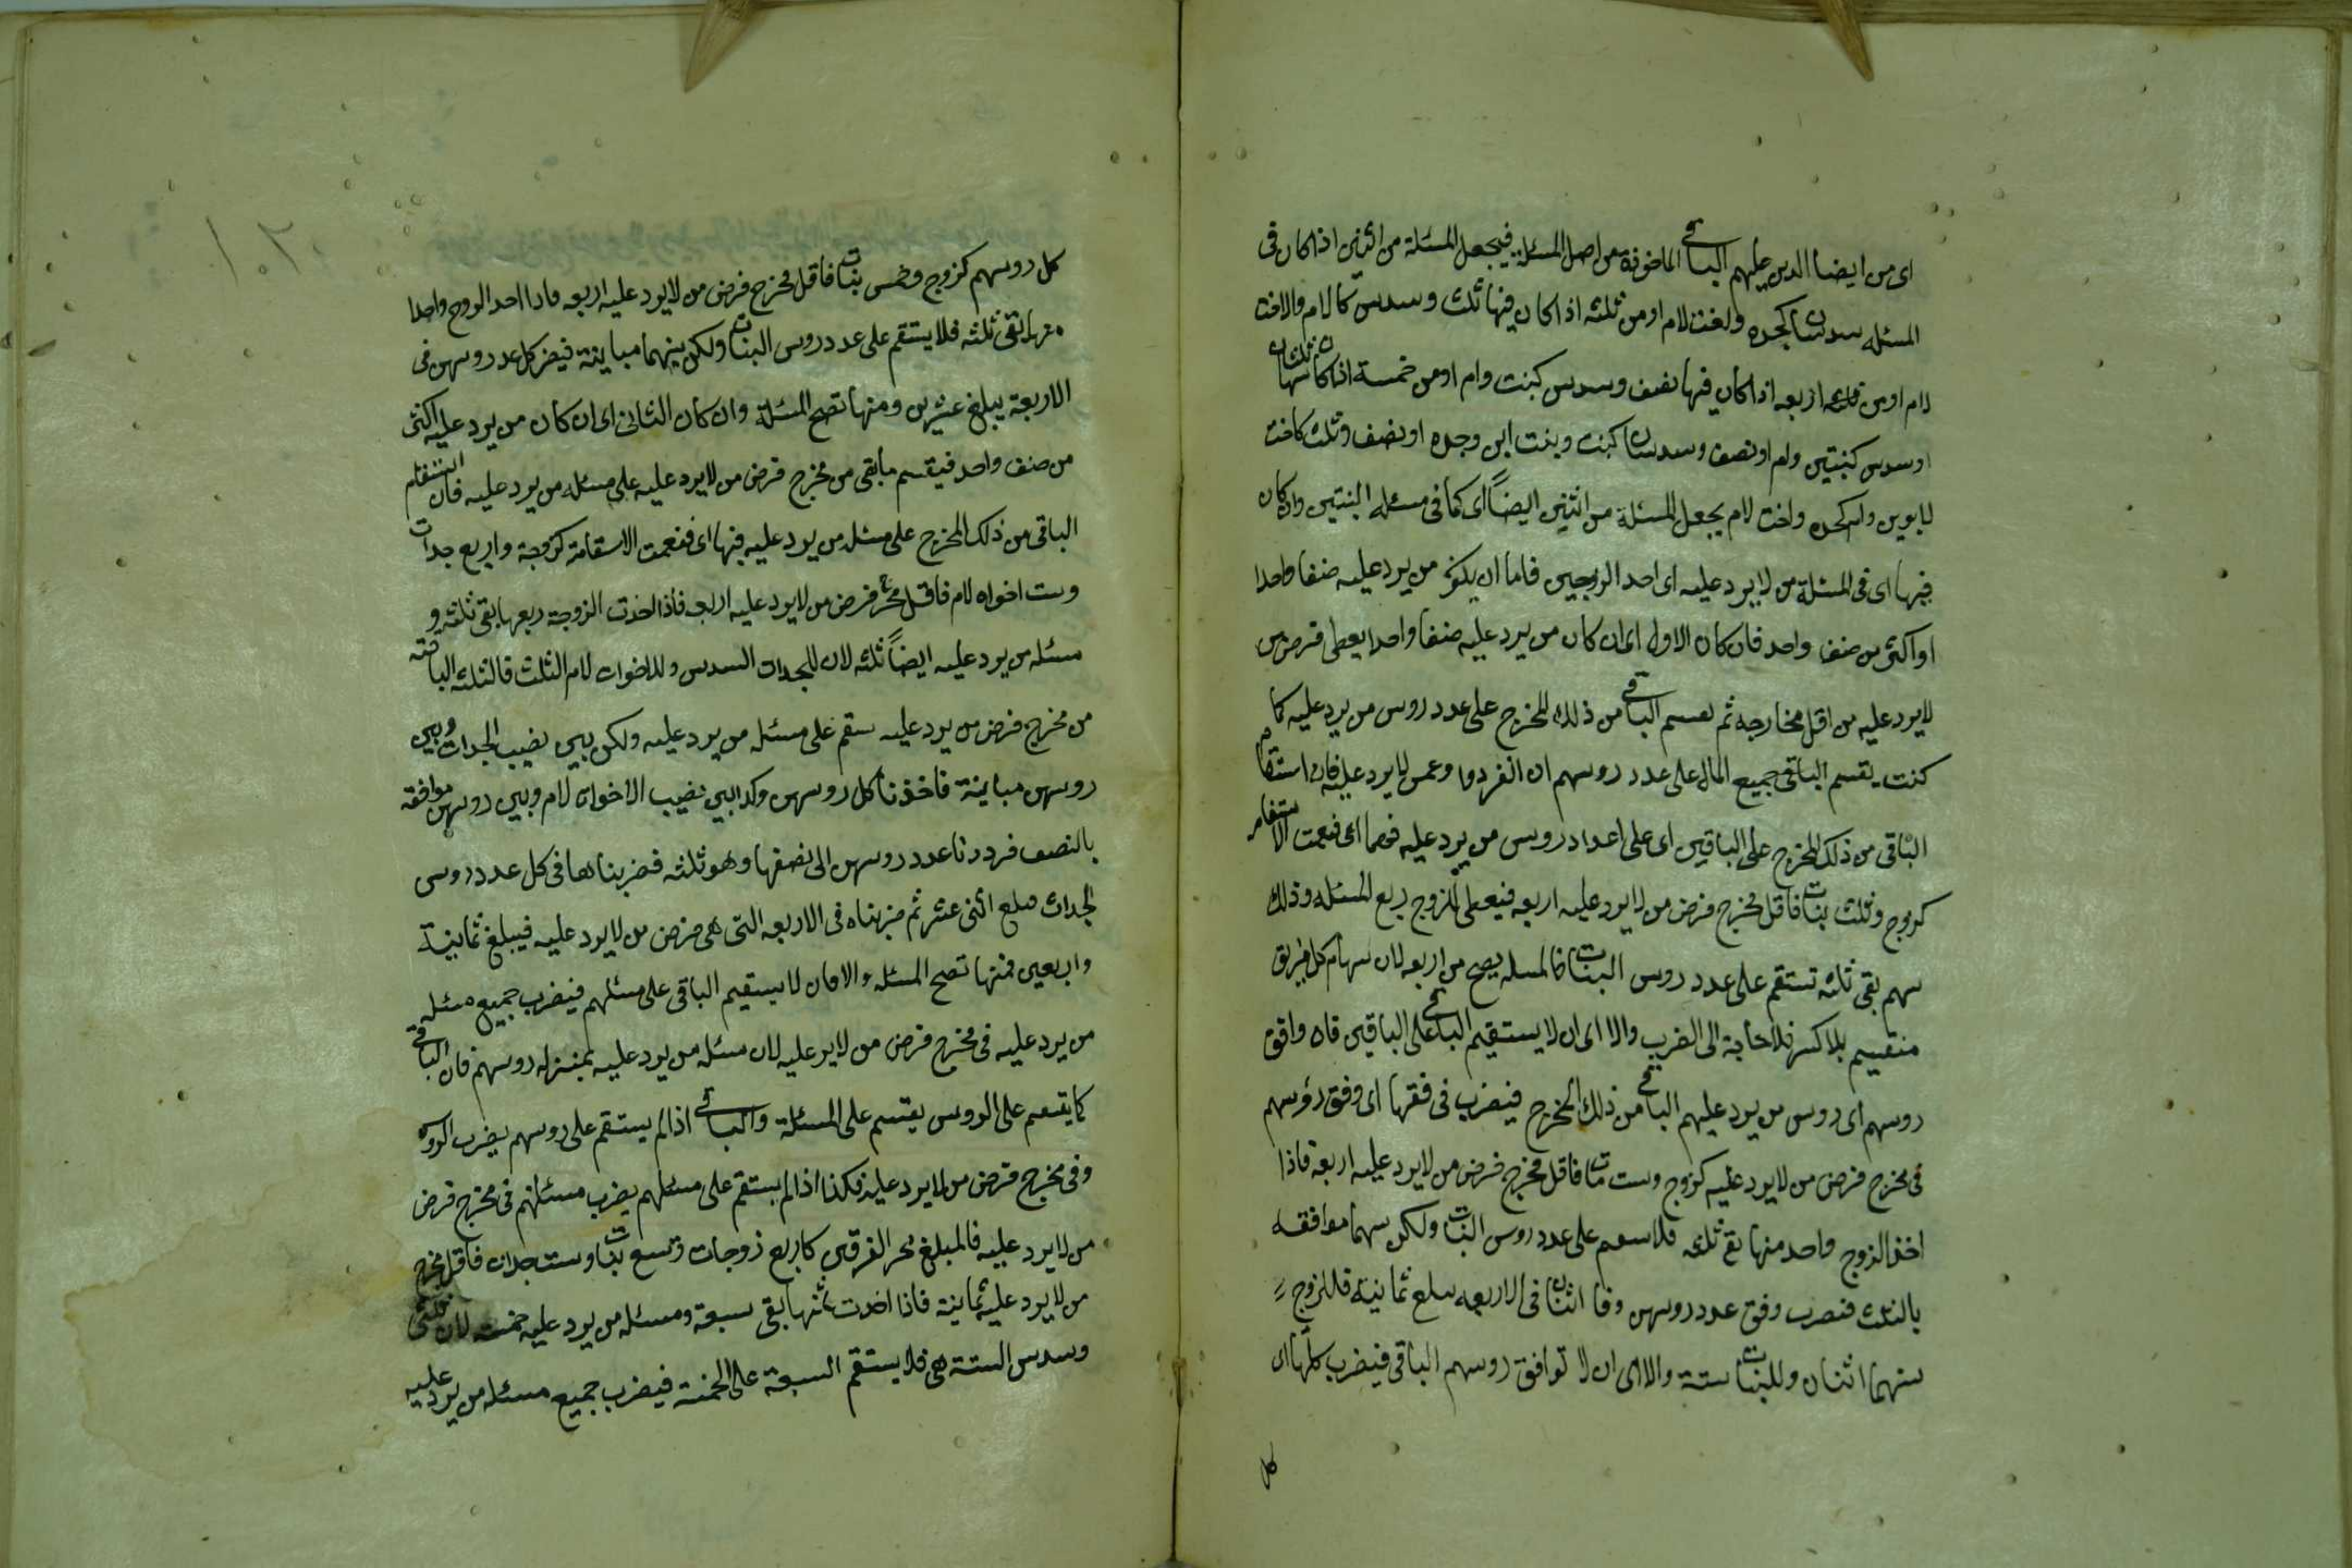 اى من ايضا الذين عليهم الباقى الماخوذة من اصل المسئلة فيجعل المسئلة من اثنين اذا كان فى
المسئله سدسان كجده واخت لام او من ثلثه اذا كان فيها ثلث وسدس كالام والاخت
لام او من اربعه اذا كان فيها نصف وسدس كبنت وام او من خمسة اذا كان ثلثان
او سدس كبنتين وام او نصف وسدسان كبنت وبنت ابن وجده او نصف وثلث كاخت
لابوين وام كجده واخت لام يجعل المسئلة من اثنين ايضاً اى كما فى مسئله البنتين وان كان
فيها اى فى المسئلة من لا يرد عليه اى احد الزوجين فاما ان يكون من يرد عليه صنفا واحدا
او اكثر من صنف واحد فان كان الاول اى ان كان من يرد عليه صنفا واحدا يعطى فرض من
لا يرد عليه من اقل مخارجه ثم يقسم الباقى من ذلك المخرج على عدد روس من يرد عليه كما
كنت يقسم الباقى جميع المال على عدد روسهم ان انفردوا وعمن لا يرد عليه فان استقام
الباقى من ذلك المخرج على الباقين اى على اعداد روس من يرد عليه فبها اى فنعمت الاستقامه
كزوج وثلث بنات فاقل مخرج فرض من لا يرد عليه اربعه فيعطى للزوج ربع المسئله وذلك
سهم بقى ثلثه تستقم على عدد روس البنات فالمسله يصح من اربعه لان سهام كل فريق
منقسم بلا كسر فلا حاجة الى الضرب والا اى ان لا يستقيم الباقى على الباقين فان وافق
روسهم اى روس من يرد عليهم الباقى من ذلك المخرج فيضرب فى وفقها اى وفق رؤسهم
فى مخرج فرض من لا يرد عليه كزوج وست بنات فاقل مخرج فرض من لا يرد عليه اربعه فاذا
اخذ الزوج واحد منها بقى ثلثه فلا يستقم على عدد روس البنات ولكن بينهما موافقه
بالثلث فنضرب وفق عدد روسهن وفا اثنان فى الاربعه يبلغ ثمانية فللزوج
منهما اثنان وللبنات ستة والا اى ان لا توافق روسهم الباقى فيضرب كلها اى
كل
كل روسهم كزوج وخمس بنات فاقل مخرج فرض من لا يرد عليه اربعه فاذا اخذ الزوج واحدا
منها بقى ثلثه فلا يستقم على عدد روس البنات ولكن بينهما مباينة فيضرب كل عدد روسهن فى
الاربعة يبلغ عشرين ومنها تصح المسئلة وان كان الثانى اى ان كان من يرد عليه اكثر
من صنف واحد فيقسم ما بقى من مخرج فرض من لا يرد عليه على مسئله من يرد عليه فان استقام
الباقى من ذلك المخرج على مسئله من يرد عليه فبها اى فنعمت الاستقامة كزوجة واربع جدات
وست اخوات لام فاقل مخرج فرض من لا يرد عليه اربعه فاذا اخذت الزوجة ربعها بقى ثلثه و
مسئله من يرد عليه ايضاً ثلثه لان للجدات السدس وللاخوات لام الثلث فالثلثه الباقيه
من مخرج فرض من يرد عليه ستقم على مسئله من يرد عليه ولكن بين نصيب الجدات وبين
روسهن مباينة فاخذنا كل روسهن وكذا بين نصيب الاخوات لام وبين روسهن موافقه
بالنصف فرددنا عدد روسهن الى نصفها وهو ثلثه فضربناها فى كل عدد روس
الجدات مبلغ اثنى عشر ثم ضربناه فى الاربعه التى هى فرض من لا يرد عليه فيبلغ ثمانية
واربعين فمنها تصح المسئله والا فان لا يستقيم الباقى على مسئلهم فيضرب جميع مسئله
من يرد عليه فى مخرج فرض من لا يرد عليه لان مسئله من يرد عليه بمنزله روسهم فان الباقى
كما يقسم على الروس يقسم على المسئلة والباقى اذا لم يستقم على روسهم يضرب الروس
وفى مخرج فرض من لا يرد عليه فكذا اذا لم يستقم على مسئلهم يضرب مسئلتهم فى مخرج فرض
من لا يرد عليه فالمبلغ مخرج الفرقين كاربع زوجات وتسع بنات وست جدات فاقل مخرج
من لا يرد عليه ثمانية فاذا اخذت ثمنها بقى سبعة ومسئله من يرد عليه خمسه لان ثلثى
وسدس الستة هى فلا يستقم السبعة على الخمسة فيضرب جميع مسئله من يرد عليه